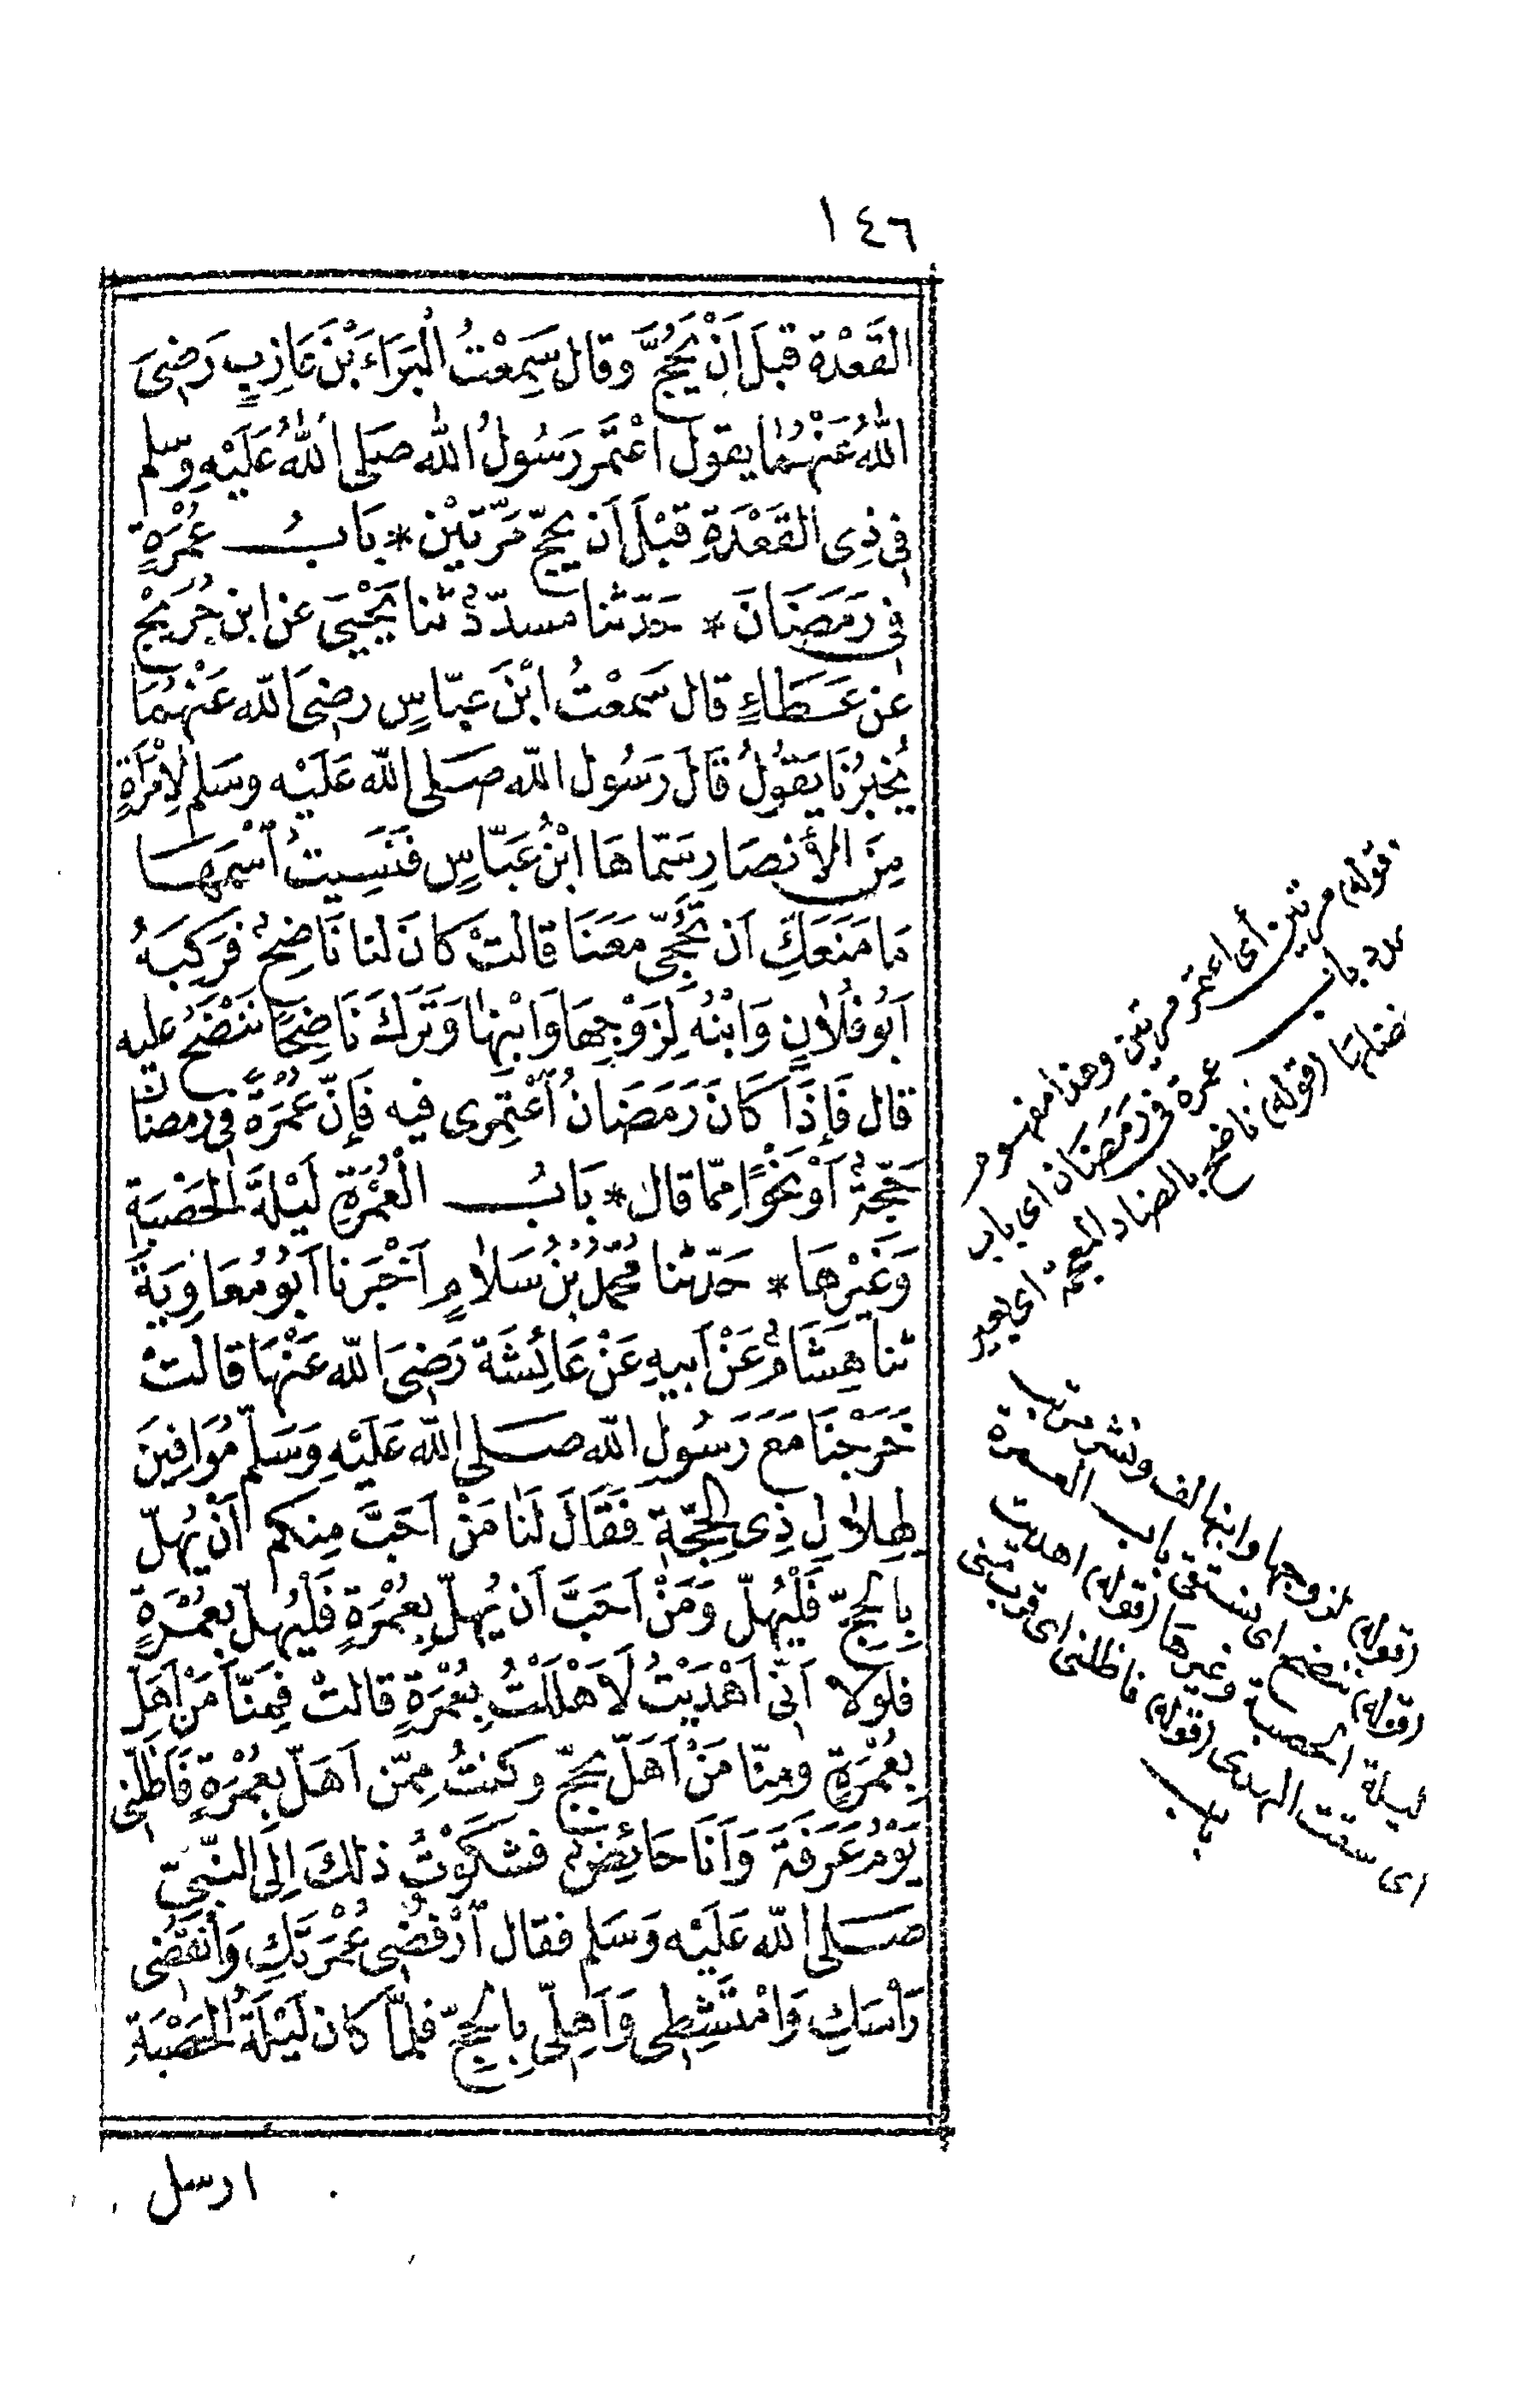 ١٤٦
القَعْدة قبلَ اَنْ يَحُجَّ وقال سَمِعْتُ الْبَرَاءَ بْنَ عَازِبٍ رَضِىَ
اللهُ عَنْهُمَا يقول اعْتَمَرَ رَسُولُ الله صَلى اللهُ عَلَيْهِ وسّلم
فى ذِى القَعْدَةِ قَبْلَ اَن يحجّ مَرّتَيْن * بَابُ عُمْرَةٍ
فى رَمَضَانَ * حَدّثنا مسدّدٌ ثنا يَحْيَى عن ابن جُرَيْجٍ
عن عَطَاءٍ قال سَمعْتُ ابْنَ عبّاسٍ رضىَ الله عَنْهُمَا
يُخبِرُنَا يَقُولُ قَالَ رَسُول الله صَلى الله عَلَيْه وسَلم لِامْرَأَةٍ
مِنَ الأنصَارِ سَمّاهَا ابْنُ عَبّاسٍ فَنَسِيتُ اسْمَهَا
مَا مَنَعَكِ اَن تَحُجّى مَعَنَا قالتْ كانَ لنا نَاضِحٌ فرَكِبَهُ
اَبُو فُلَانٍ وَابْنُهُ لِزَوْجِهَا وَابْنِهَا وَتَرَكَ نَاضِحًا نَنْضَحُ عليه
قال فَإِذَا كَانَ رَمَضَانُ اعْتَمِرِى فيه فَإِنّ عُمْرَةً فى رمضان
حَجّةٌ اَوْ نَحْوًا مِمّا قال * بَابُ الْعُمْرَةِ لَيْلَةَ الْحَصْبَةِ
وَغَيْرِهَا * حَدّثنا مُحَمّدُ بْنُ سَلَامٍ اَخْبَرَنا اَبُو مُعَاوِيَةَ
ثنا هِشَامٌ عَنْ اَبيهِ عَنْ عَائِشَةَ رَضِىَ الله عَنْهَا قالَتْ
خَرَجْنَا مَعَ رَسُول الله صَلى الله عَلَيْهِ وَسَلّم مُوَافِينَ
لِهِلَالِ ذِى الْحِجّةِ فَقَالَ لَنَا مَنْ اَحَبَّ مِنكم اَنْ يُهِلّ
بِالحَجّ فَلْيُهِلّ وَمَنْ اَحَبَّ اَن يُهِلّ بِعُمْرَةٍ فَلْيُهِلّ بِعُمْرَةٍ
فلَوْلَا اَنّى اَهْدَيْتُ لَاَهْلَلْتُ بِعُمْرَةٍ قالتْ فَمِنّا مَنْ اَهَلّ
بِعُمْرَةٍ ومِنّا مَنْ اَهَلّ بحَجّ وكنتُ مِمّن اَهَلّ بِعُمْرَةٍ فَاَظَلّنِى
يَوْمُ عَرَفَةَ وَاَنَا حَائِضٌ فشكَوْتُ ذلكَ اِلَى النّبِىّ
صَلى الله عَلَيْه وَسَلم فقال ارْفُضِى عُمْرَتَكِ وَانْقُضِى
رَاْسَكِ وَامْتَشِطِى وَاَهِلّى بِالْحَجّ فلمّا كان لَيْلَةُ الْحَصْبَةِ
ارسل
(قوله) مرتين أى اعتمر مرتين وهذا مفهوم
عدد باب عمرة فى رَمَضَان اى باب
فضلها (قوله) ناضح بالضاد المعجمة اى بعير
(قوله) لزوجها وابنها لف ونشر مرتب
(قوله) ننضح اى نستقى باب العمرة
ليلة الحصبة وغيرها (قوله) اهديت
اى سقت الهدى (قوله) فاظلنى اى قرب منى
باب